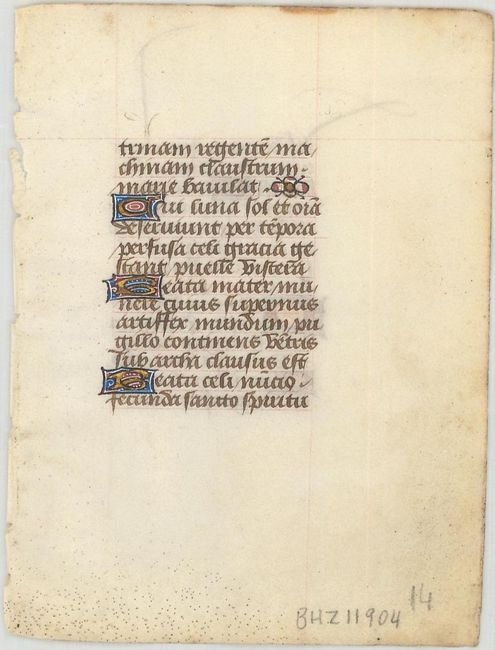 trinam regentē ma
chinam claustrum
marie baiulat.
Cui luna sol et oīa
deseruiunt per tēpora
perfusa celi gracia ge
stant puelle viscera
Beata mater mu
nere cuius supernus
artiffex mundum pu
gillo continens vētris
sub archa clausus est
Beata celi nūcio
fecunda sancto spiritu
14
BHZ11904